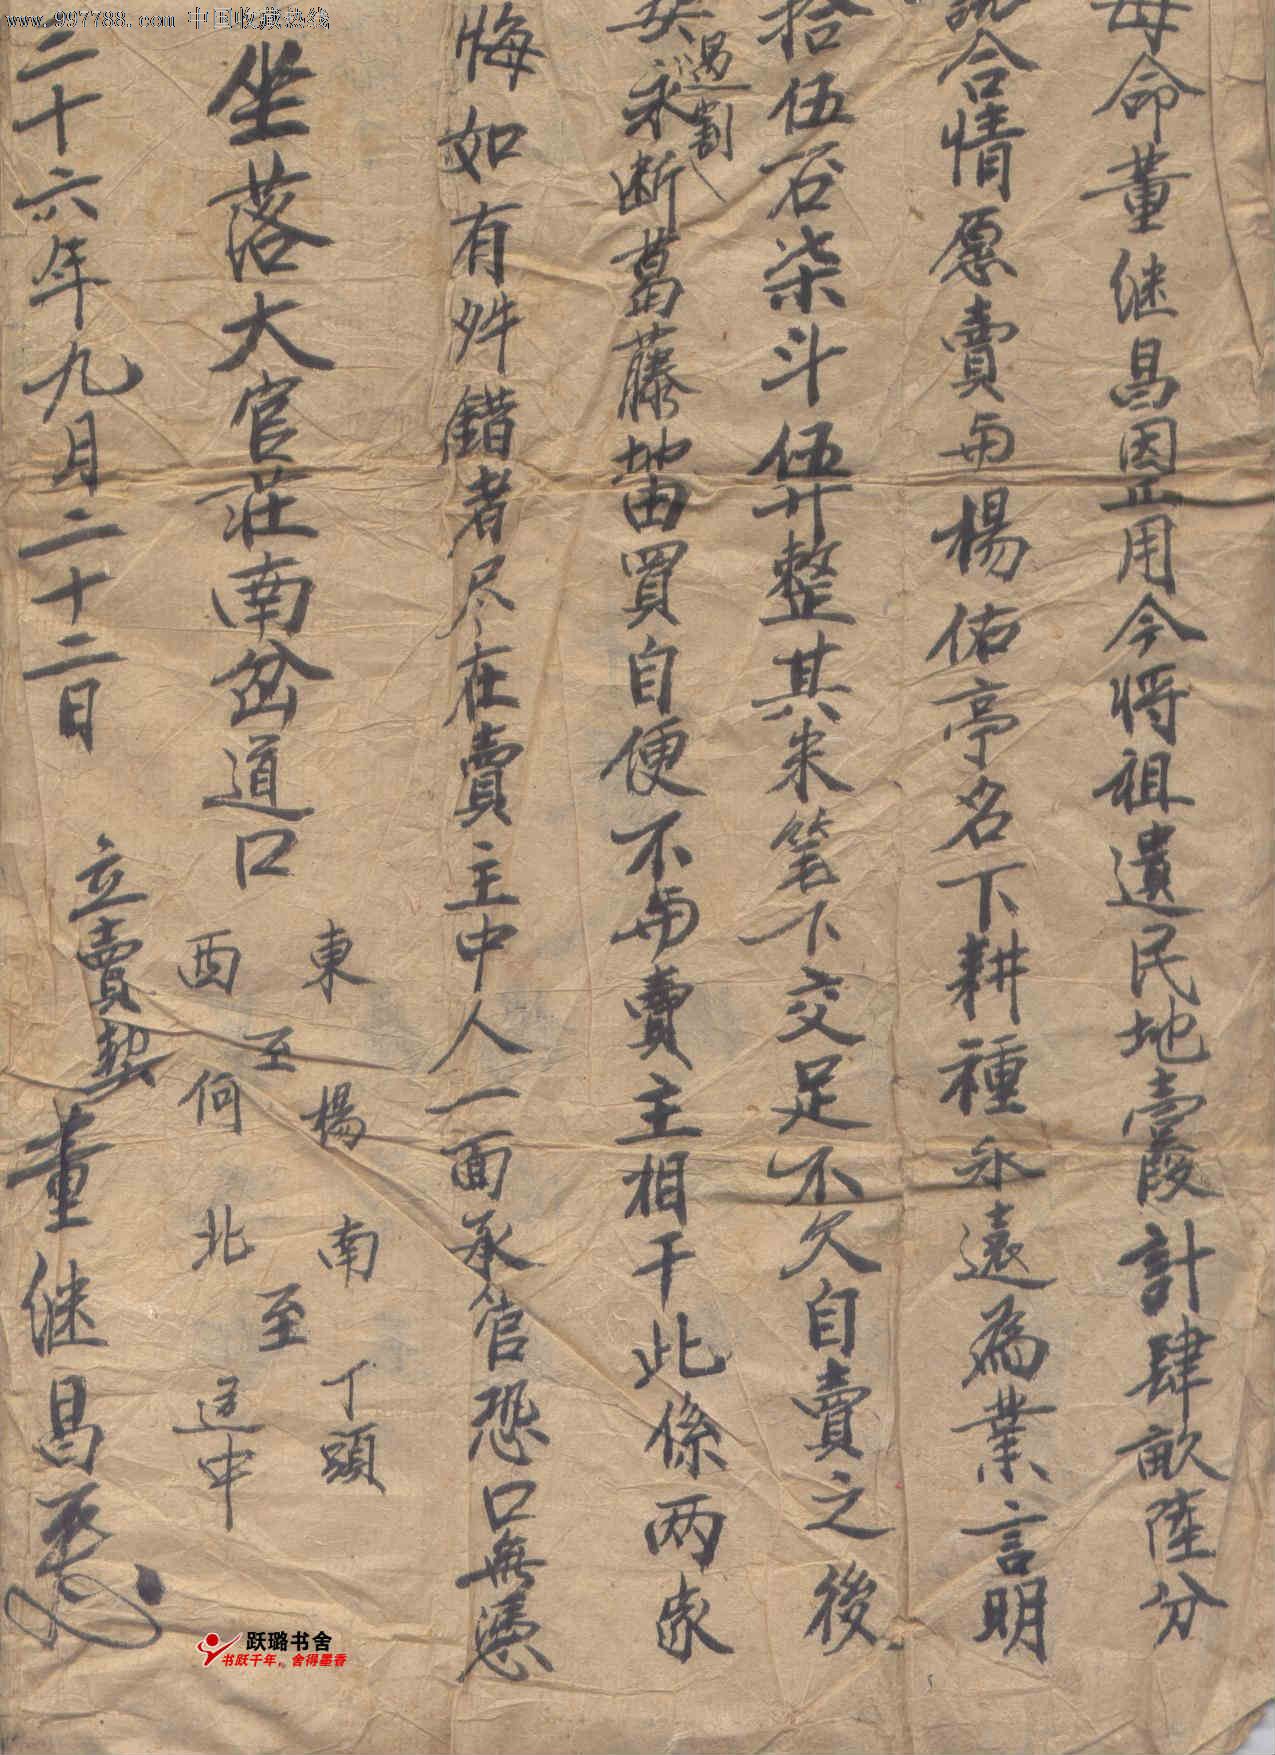 www.997788.com 中国收藏热线
母命董継昌因正用今将祖遺民地壹段計肆畝陸分
說合情愿賣與楊佑亭名下耕種永遠為業言明
拾伍石柒斗伍升整其米筆下交足不欠自賣之後
過割
永断葛藤地由買自便不與賣主相干此係两家
悔如有舛錯者尽在賣主中人一面承管恐口無憑
坐落大官莊南岔道口
東至楊
西至何
南至丁頭
北至道中
二十六年九月二十二日
立賣契董継昌
跃璐书舍
书跃千年，舍得墨香